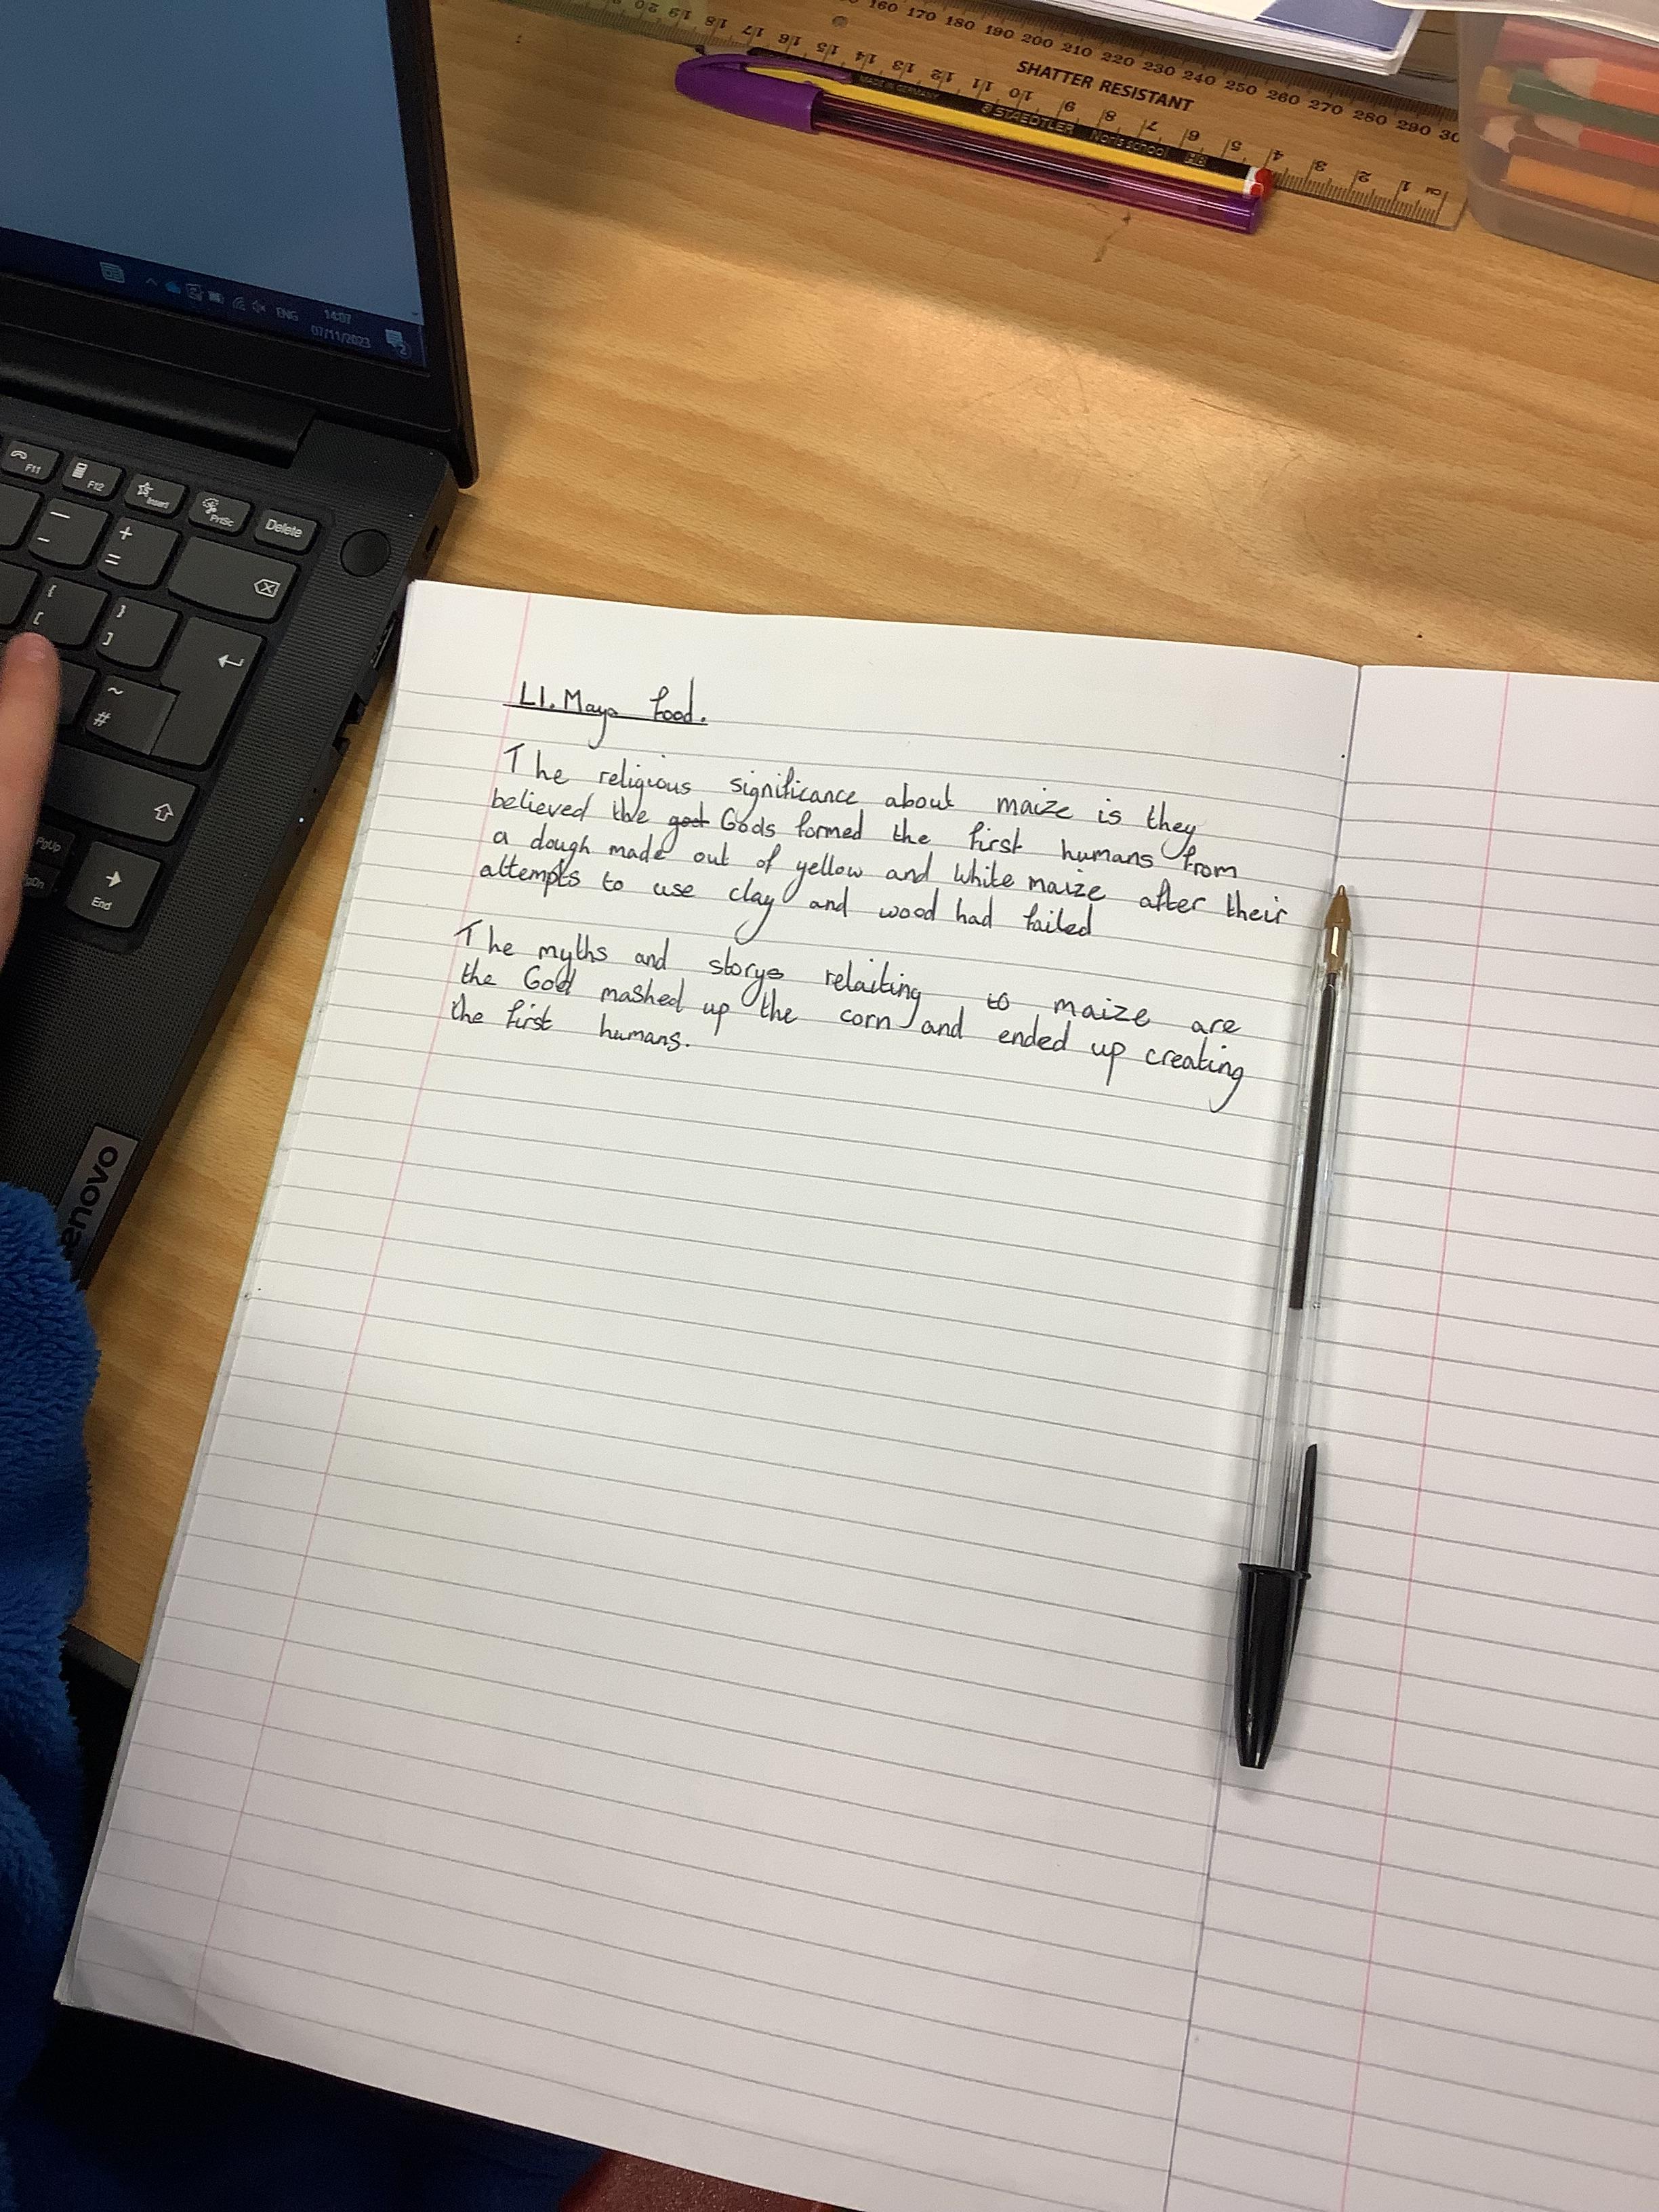 160 170 180 190 200 210 220 230 240 250 260 270 280 290 30
20 19 18 17 16 15 14 13 12 11 10 9 8 7 6 5 4 3 2 1 CM
SHATTER RESISTANT
MADE IN GERMANY
STAEDTLER Noris school HB
ENG
14:07
07/11/2023
2
F11
F12
Insert
PrtSc
Delete
PgUp
End
enovo
LI. Maya food.
The religious significance about maize is they
believed the god Gods formed the first humans from
a dough made out of yellow and white maize after their
attempts to use clay and wood had failed
The myths and storys relaiting to maize are
the God mashed up the corn and ended up creating
the first humans.